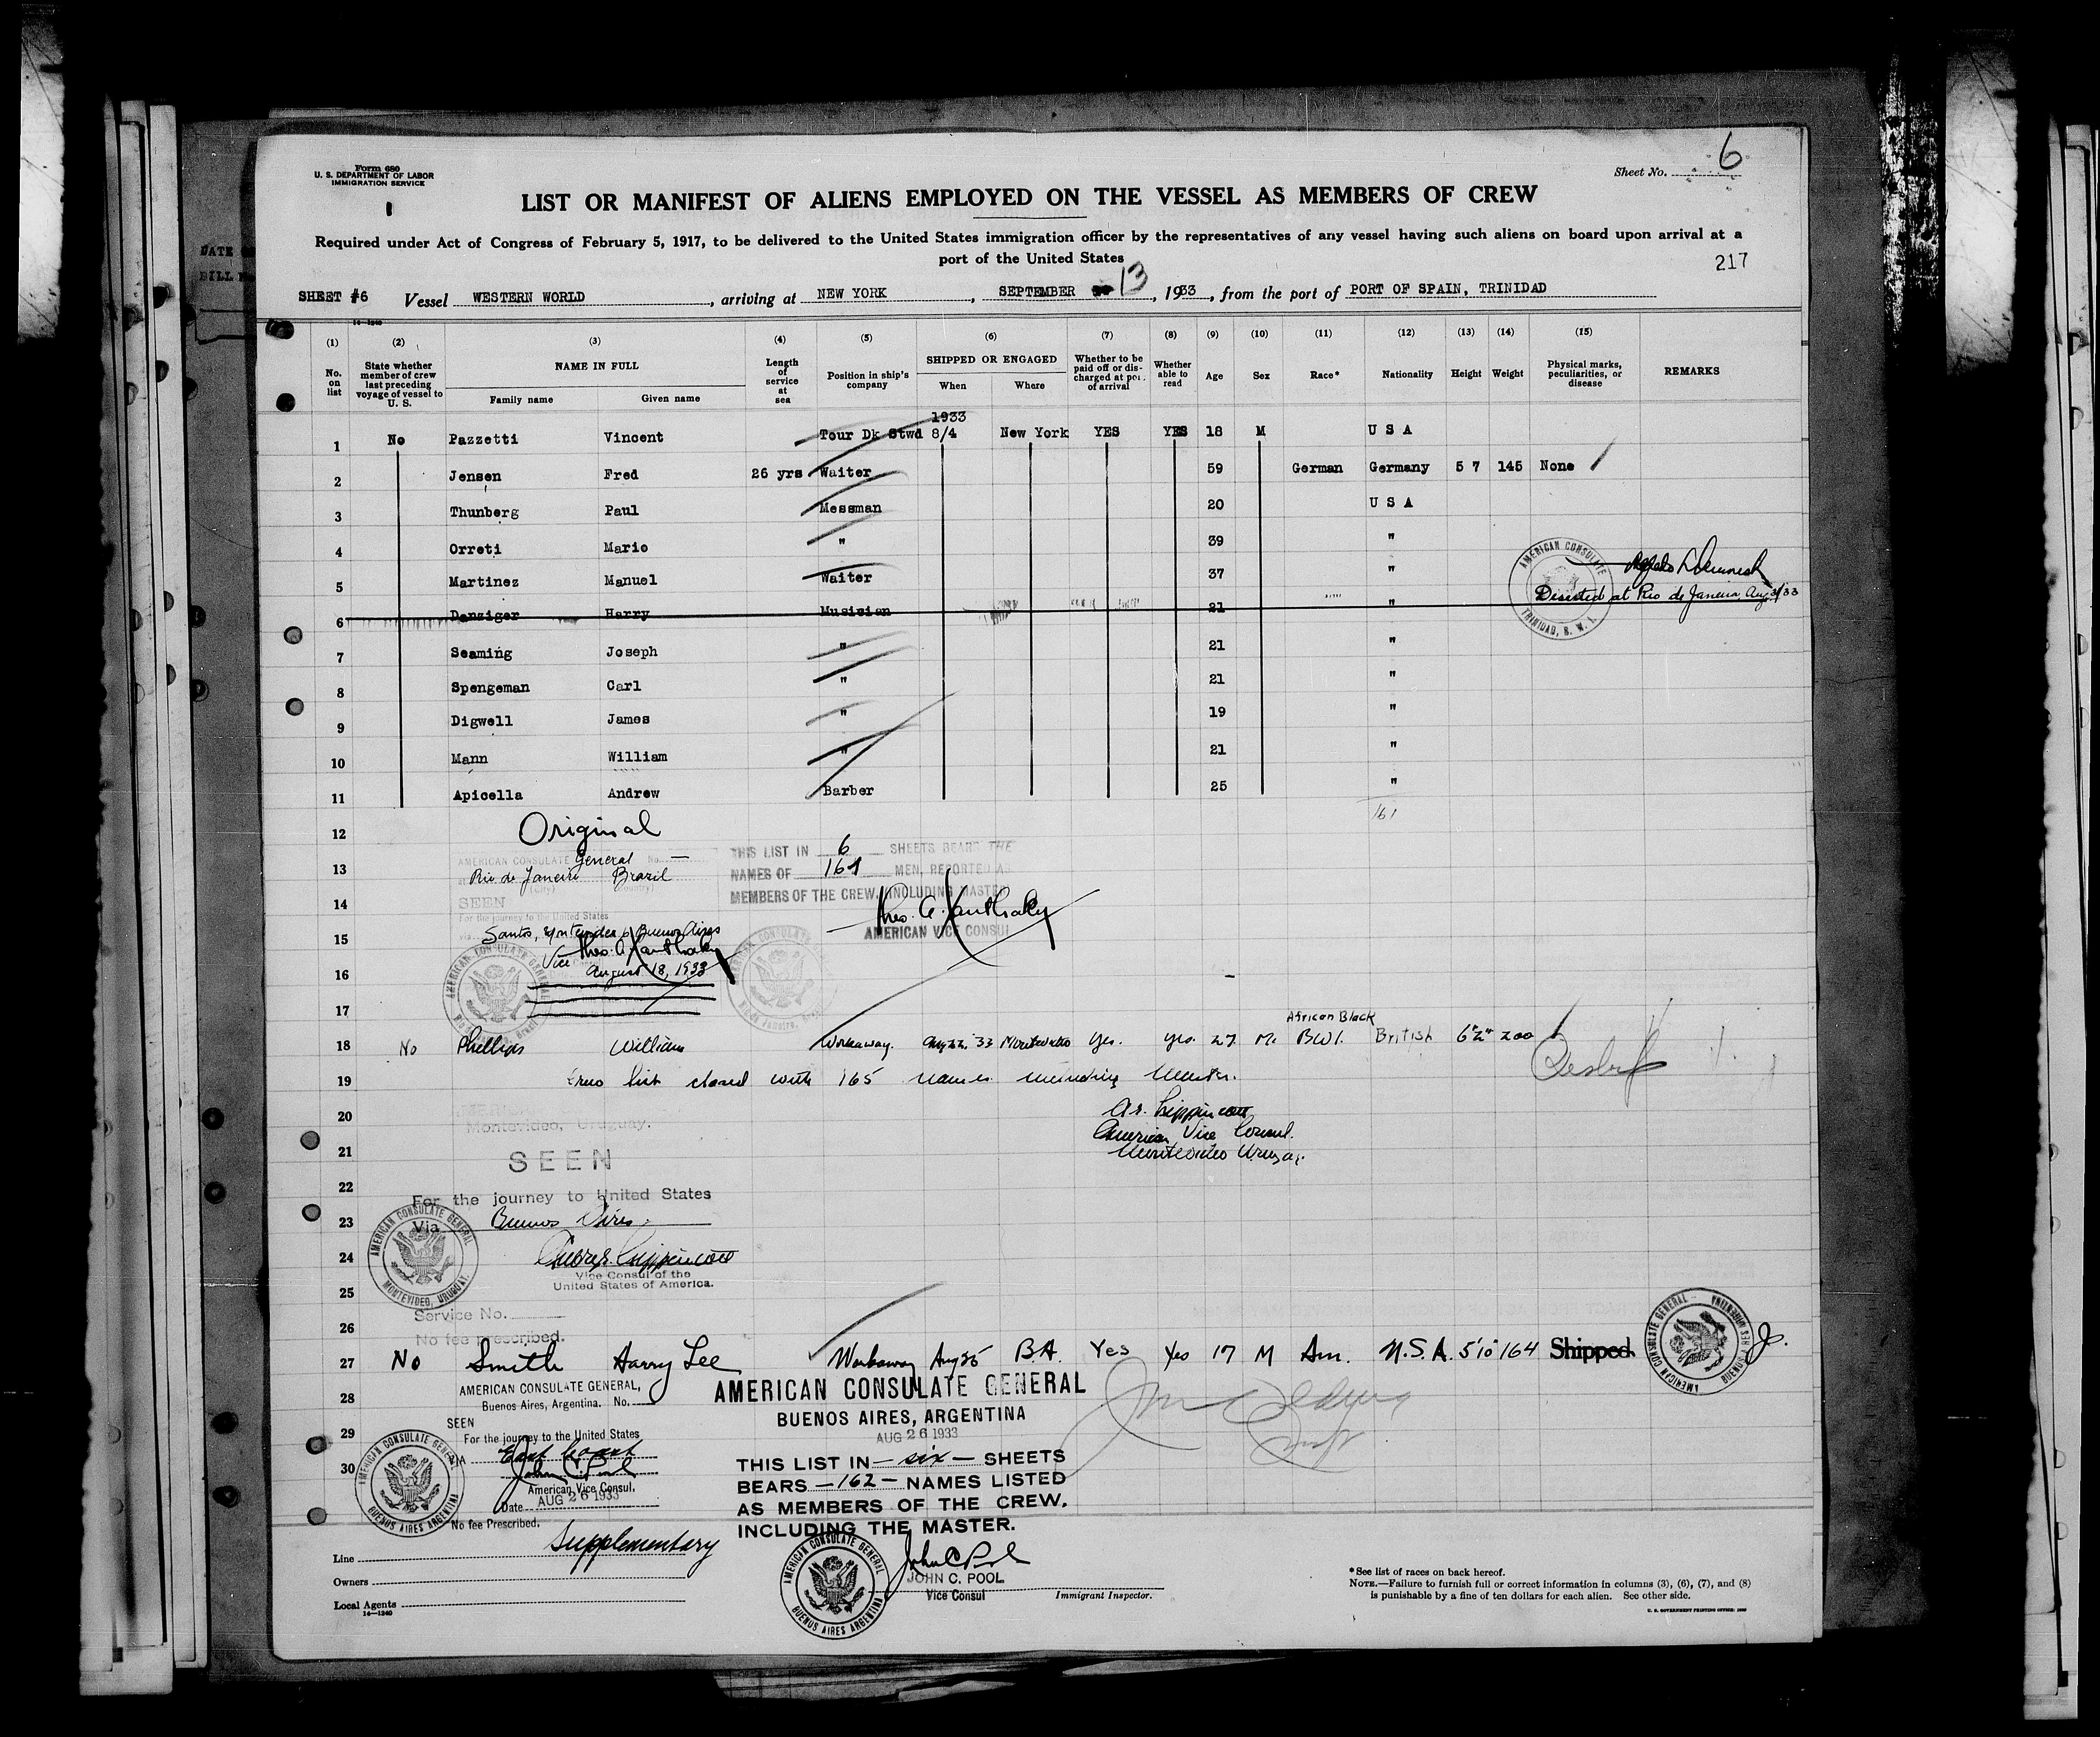 Form 680
U. S. DEPARTMENT OF LABOR
IMMIGRATION SERVICE
Sheet No. 6
LIST OR MANIFEST OF ALIENS EMPLOYED ON THE VESSEL AS MEMBERS OF CREW
Required under Act of Congress of February 5, 1917, to be delivered to the United States immigration officer by the representatives of any vessel having such aliens on board upon arrival at a
port of the United States
217
DATE
BILL
SHEET #6 Vessel WESTERN WORLD, arriving at NEW YORK, SEPTEMBER 13, 1933, from the port of PORT OF SPAIN, TRINIDAD
14-1240
(1) (2) (3) (4) (5) (6) (7) (8) (9) (10) (11) (12) (13) (14) (15)
No. on list State whether member of crew last preceding voyage of vessel to U. S. NAME IN FULL Family name Given name Length of service at sea Position in ship's company SHIPPED OR ENGAGED When Where Whether to be paid off or discharged at port of arrival Whether able to read Age Sex Race* Nationality Height Weight Physical marks, peculiarities, or disease REMARKS
1933
1 No Pazzetti Vincent Tour Dk Stwd 8/4 New York YES YES 18 M U S A
2 Jensen Fred 26 yrs Waiter 59 German Germany 5 7 145 None
3 Thunberg Paul Messman 20 U S A
4 Orreti Mario " 39 "
5 Martinez Manuel Waiter 37 "
6 Danziger Harry Musician 21 "
AMERICAN CONSULATE TRINIDAD, B. W. I.
Deserted at Rio de Janeiro Aug 31/33
7 Seaming Joseph " 21 "
8 Spengeman Carl " 21 "
9 Digwell James " 19 "
10 Mann William " 21 "
11 Apicella Andrew Barber 25 "
161
12 Original
13 AMERICAN CONSULATE General No. —
Rio de Janeiro Brazil
(City) (Country)
SEEN
For the journey to the United States
Santos, Montevideo, Buenos Aires
Vice Theo. A. Xanthaky
August 18, 1933
THIS LIST IN 6 SHEETS BEARS THE
NAMES OF 161 MEN, REPORTED AS
MEMBERS OF THE CREW, INCLUDING MASTER
Theo. A. Xanthaky
AMERICAN VICE CONSUL
14
15
16
17
African Black
18 No Phillips William Workaway. Aug 22 '33 Montevideo Yes. Yes. 27 M. BWI. British 6'2" 200
19 Crew list closed with 165 names including Master.
20 Montevideo, Uruguay.
A.S. Lippincott
American Vice Consul.
Montevideo Uruguay.
21 SEEN
22 For the journey to United States
23 Via Buenos Aires.
24
Vice Consul of the
United States of America.
AMERICAN CONSULATE GENERAL MONTEVIDEO, URUGUAY.
25 Service No.
26 No fee prescribed.
27 No Smith Harry Lee Workaway Aug 25 B.A. Yes Yes 17 M Am. U.S.A. 5'10 164 Shipped.
AMERICAN CONSULATE GENERAL BUENOS AIRES ARGENTINA
28 AMERICAN CONSULATE GENERAL,
Buenos Aires, Argentina. No.
SEEN
29 For the journey to the United States
VIA East Coast
30 John C. Pool
American Vice Consul.
Date AUG 26 1933
No fee Prescribed.
AMERICAN CONSULATE GENERAL BUENOS AIRES ARGENTINA
AMERICAN CONSULATE GENERAL
BUENOS AIRES, ARGENTINA
AUG 26 1933
THIS LIST IN — six — SHEETS
BEARS — 162 — NAMES LISTED
AS MEMBERS OF THE CREW.
INCLUDING THE MASTER.
Supplementary
John C Pool
JOHN C. POOL
Vice Consul
AMERICAN CONSULATE GENERAL BUENOS AIRES ARGENTINA
Immigrant Inspector.
Line
Owners
Local Agents
14-1240
*See list of races on back hereof.
NOTE.—Failure to furnish full or correct information in columns (3), (6), (7), and (8)
is punishable by a fine of ten dollars for each alien. See other side.
U. S. GOVERNMENT PRINTING OFFICE